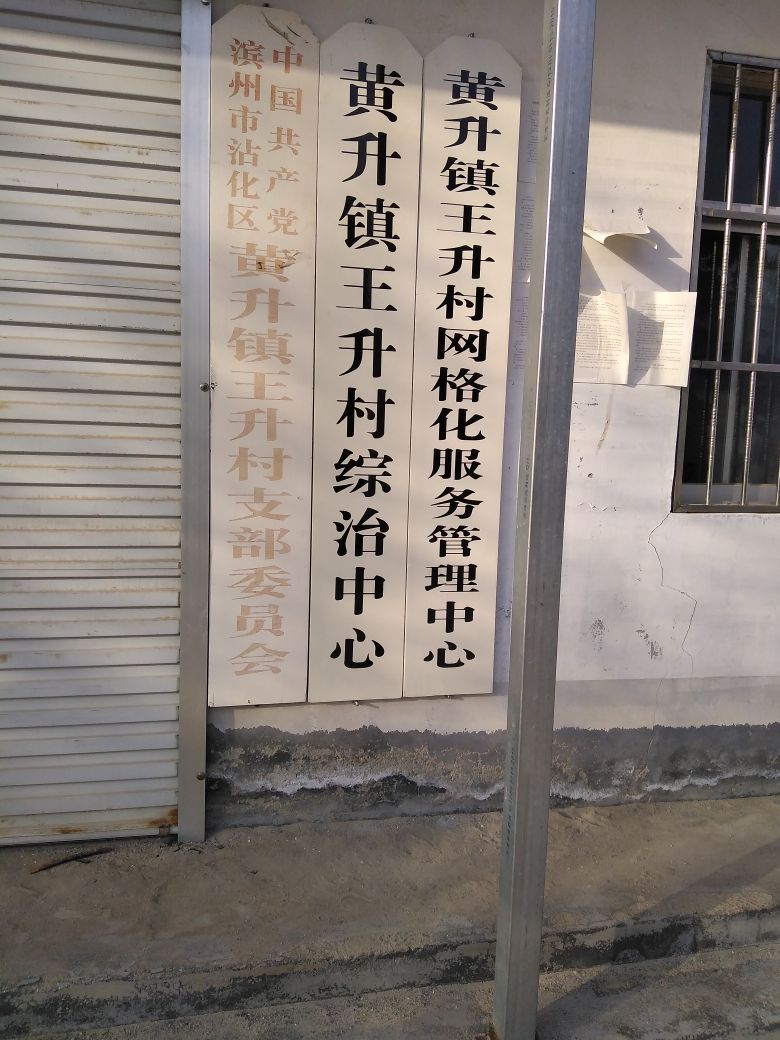 中国共产党
滨州市沾化区
黄升镇王升村支部委员会
黄升镇王升村综治中心
黄升镇王升村网格化服务管理中心